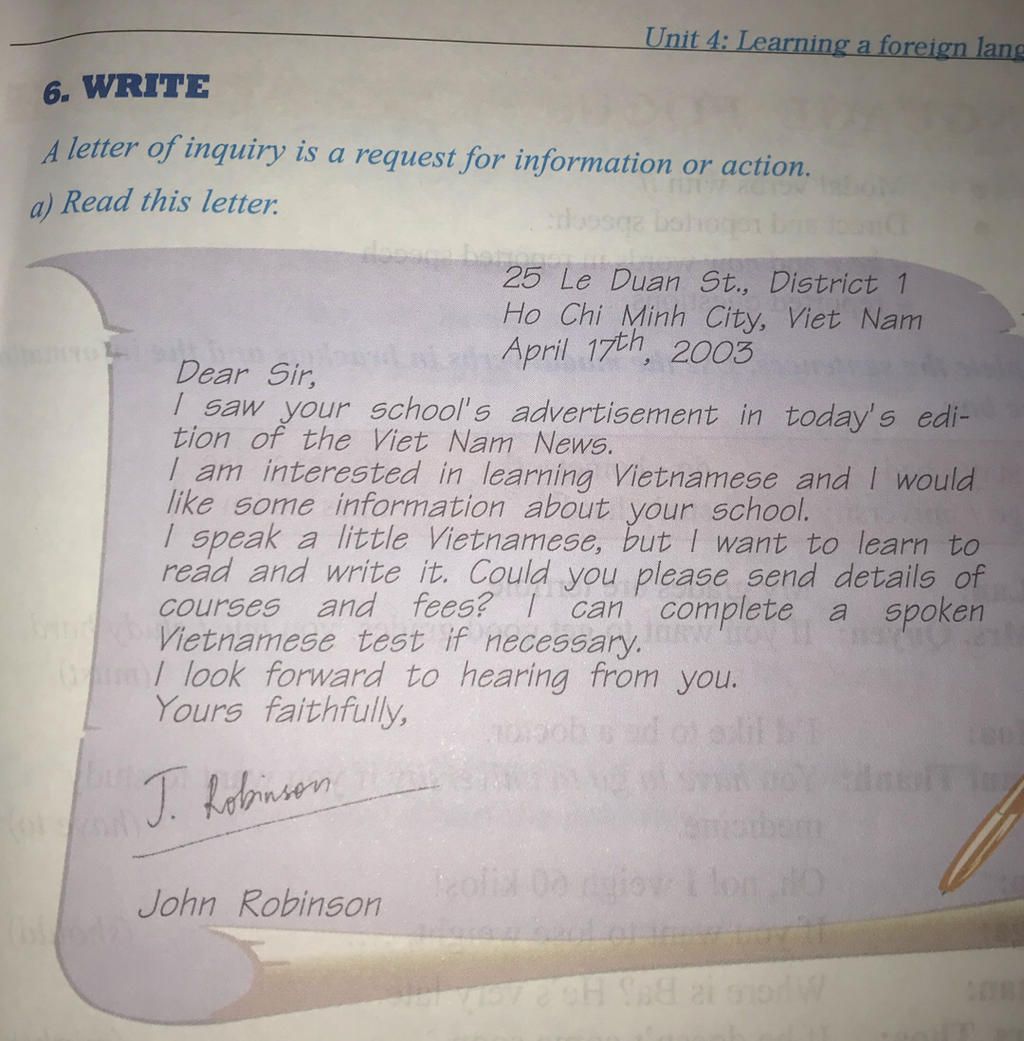 Unit 4: Learning a foreign
6. WRITE
A letter of inquiry is a request for information or action.
a) Read this letter.
25 Le Duan St., District 1
Ho Chi Minh City, Viet Nam
April 17th, 2003
Dear Sir,
I saw your school's advertisement in today's edi-
tion of the Viet Nam News.
I am interested in learning Vietnamese and I would
like some information about your school.
I speak a little Vietnamese, but I want to learn to
read and write it. Could you please send details of
courses and fees? I can complete a spoken
Vietnamese test if necessary.
I look forward to hearing from you.
Yours faithfully,
J. Robinson
John Robinson